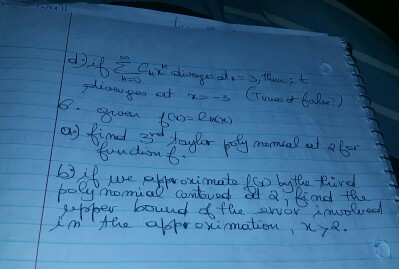 d) if ∞ Σ n=0 Cₙxⁿ diverges at x = 3, then it
diverges at x = -3 (True or false?)
6. given f(x) = ln(x)
a) find 3rd taylor poly nomial at 2 for
function f.
b) if we approximate f(x) by the third
poly nomial centered at 2, find the
upper bound of the error involved
in the approximation, x > 2.